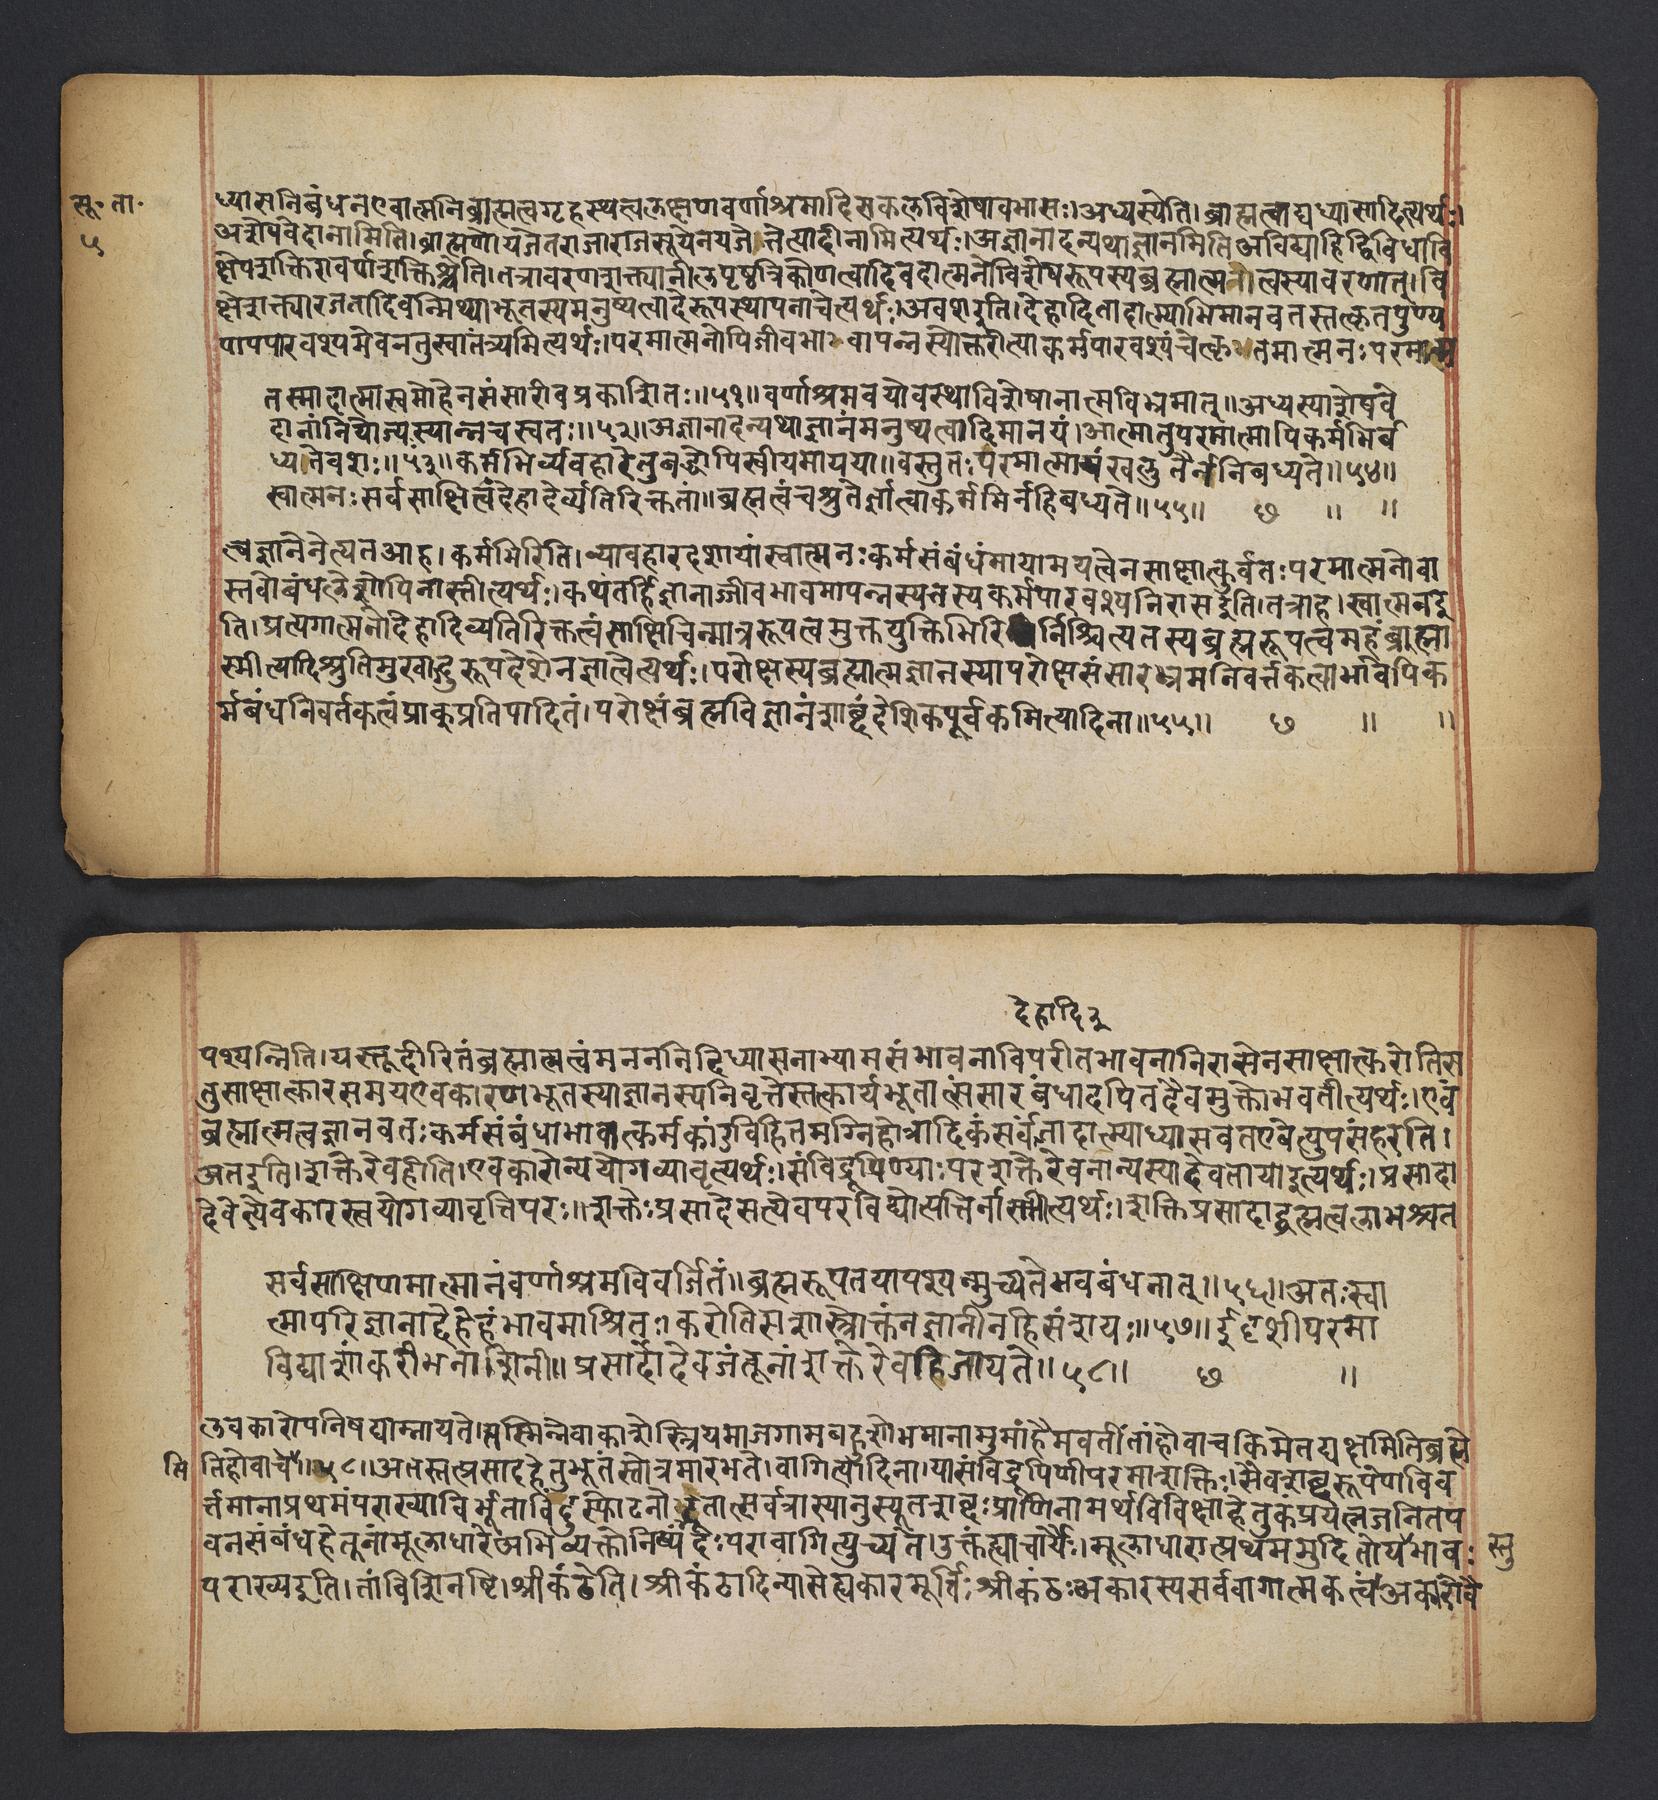 सू॰ ता॰
५
ध्यासनिबंधनएवात्मनिब्राह्मत्वगृहस्थत्वलक्षणवर्णाश्रमादिसकलविशेषावभासः।अध्यस्येति।ब्राह्मत्वाद्यध्यासादित्यर्थः।
अशेषवेदानामिति।ब्राह्मणोयजेतराजाराजसूयेनयजेतेत्यादीनामित्यर्थः।अज्ञानादन्यथाज्ञानमितिअविद्याहिद्विविधावि
क्षेपशक्तिरावर्णशक्तिश्चेति।तत्रावरणशक्त्यानीलपृष्ठत्रिकोणत्वादिवदात्मनोविशेषरूपस्यब्रह्मात्मनोत्वस्यावरणात्।वि
क्षेपशक्त्यारजतादिवन्मिथ्याभूतस्यमनुष्यत्वादेरूपस्थापनाच्चेत्यर्थः।अवशइति।देहादितादात्म्याभिमानवतस्तत्कृतपुण्य
पापपारवश्यमेवनतुस्वातंत्र्यमित्यर्थः।परमात्मनोपिजीवभावापन्नस्योक्तरीत्याकर्मपारवश्यंचेत्कृ तमात्मनःपरमात्म
तस्मादात्मास्वमोहेनसंसारीवप्रकाशितः॥५१॥वर्णाश्रमवयोवस्थाविशेषानात्मविभ्रमात्॥अध्यस्याशेषवे
दानांनियोज्यःस्यान्नचस्वतः॥५२॥अज्ञानादन्यथाज्ञानंमनुष्यत्वादिमानयं।आत्मातुपरमात्मापिकर्मभिर्ब
ध्यतेवशः॥५३॥कर्मभिर्व्यवहारेतुबद्धोपिस्वीयमायया॥वस्तुतःपरमात्मायंखलुतैर्ननिबध्यते॥५४॥
स्वात्मनःसर्वसाक्षित्वंदेहादेर्व्यतिरिक्ततां॥ब्रह्मत्वंचश्रुतेर्ज्ञात्वाकर्मभिर्नहिबध्यते॥५५॥ छ ॥ ॥
त्वज्ञानेनेत्यतआह।कर्मभिरिति।व्यावहारदशायांस्वात्मनःकर्मसंबंधंमायामयत्वेनसाक्षात्कुर्वतःपरमात्मनोवा
स्तवोबंधलेशोपिनास्तीत्यर्थः।कथंतर्हिज्ञानाज्जीवभावमापन्नस्यतस्यकर्मपारवश्यनिरासइति।तत्राह।स्वात्मनइ
ति।प्रत्यगात्मनोदेहादिव्यतिरिक्तत्वंसाक्षिचिन्मात्ररूपत्वमुक्तयुक्तिभिरि र्निश्चित्यतस्यब्रह्मरूपत्वमहंब्राह्मा
स्मीत्यादिश्रुतिमुखाद्गुरूपदेशेनज्ञात्वेत्यर्थः।परोक्षस्यब्रह्मात्मज्ञानस्यापरोक्षसंसारभ्रमनिवर्त्तकत्वाभावेपिक
र्मबंधनिवर्तकत्वंप्राक्प्रतिपादितं।परोक्षंब्रह्मविज्ञानंशाब्दंदेशिकपूर्वकमित्यादिना॥५५॥ छ ॥ ॥
देहादिरु
पश्यन्निति।यस्तूदीरितंब्रह्मात्मत्वंमनननिदिध्यासनाभ्यामसंभावनाविपरीतभावनानिरासेनसाक्षात्करोतिस
तुसाक्षात्कारसमयएवकारणभूतस्याज्ञानस्यनिवृत्तेस्तत्कार्यभूतात्संसारबंधादपितदैवमुक्तोभवतीत्यर्थः।एवं
ब्रह्मात्मत्वज्ञानवतःकर्मसंबंधाभावात्कर्मकांडविहितमग्निहोत्रादिकंसर्वंतादात्म्याध्यासवतएवेत्युपसंहरति।
अतइति।शक्तेरेवहीति।एवकारोन्ययोगव्यावृत्यर्थः।संविद्रूपिण्याःपरशक्तेरेवनान्यस्यादेवतायाइत्यर्थः।प्रसादा
देवेत्येवकारस्त्वयोगव्यावृत्तिपरः॥शक्तेःप्रसादेसत्येवपरविद्योत्पत्तिर्नास्तीत्यर्थः।शक्तिप्रसादाद्ब्रह्मत्वलाभश्चत
सर्वसाक्षिणमात्मानंवर्णाश्रमविवर्जितं॥ब्रह्मरूपतयापश्यन्मुच्यतेभवबंधनात्॥५६॥अतःस्वा
त्मापरिज्ञानाद्देहेहंभावमाश्रितः।करोतिसशास्त्रोक्तंनज्ञानीनहिसंशयः॥५७॥ईदृशीपरमा
विद्याशांकरीभवनाशिनी॥प्रसादादेवजंतूनांशक्तेरेवहिजायते॥५८॥ छ ॥
लवकारोपनिषद्याम्नायते।सतस्मिन्नेवाकाशेस्त्रियमाजगामबहुशोभमानामुमांहैमवतींतांहोवाचकिमेतद्यक्षमितिब्रह्मे
ति तिहोवाचे॥५८॥अतस्तत्प्रसादहेतुभूतंस्तोत्रमारभते।वागित्यादिना।यासंविद्रूपिणीपरमाशक्तिः।सैवशब्दरूपेणविव
र्त्तमानाप्रथमंपराख्याविर्भूताबिंदुस्फोटनो तात्सर्वत्रास्यानुस्यूतशब्दःप्राणिनामर्थविविक्षाहेतुकप्रयत्नजनितप
वनसंबंधहेतूनांमूलाधारेअभिव्यक्तोनिष्पंदःपरावागित्युच्यते।उक्तंह्याचार्यैः।मूलाधारात्प्रथममुदितोयभावः स्तु
पराख्यइति।तांविशिनष्टि।श्रीकंठेति।श्रीकंठादिन्यासेह्यकारमूर्तिःश्रीकंठःअकारस्यसर्ववागात्मकत्वंअकारोवै